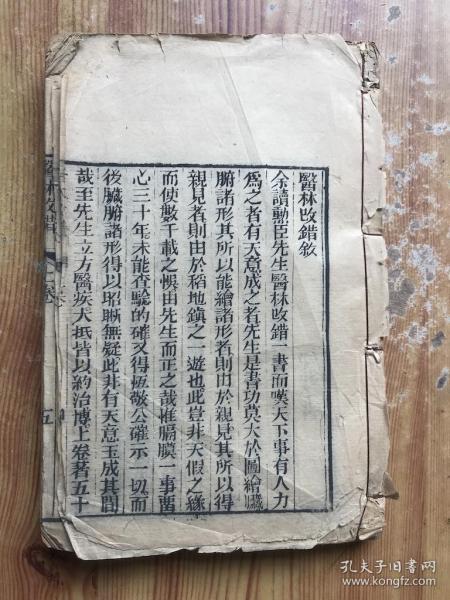 醫林改錯敘
余讀勳臣先生醫林改錯一書而嘆天下事有人力
為之者有天意成之者先生是書功莫大於圖繪臟
腑諸形其所以能繪諸形者則由於親見其所以得
親見者則由於稻地鎮之一遊也此豈非天假之緣
而使數千載之悞由先生而正之哉惟膈膜一事留
心三十年未能查驗的確又得恆敬公確示一切而
後臟腑諸形得以昭晰無疑此非有天意玉成其間
哉至先生立方醫疾大抵皆以約治博上卷著五十
醫林改錯
上卷
五
孔夫子旧书网
www.kongfz.com